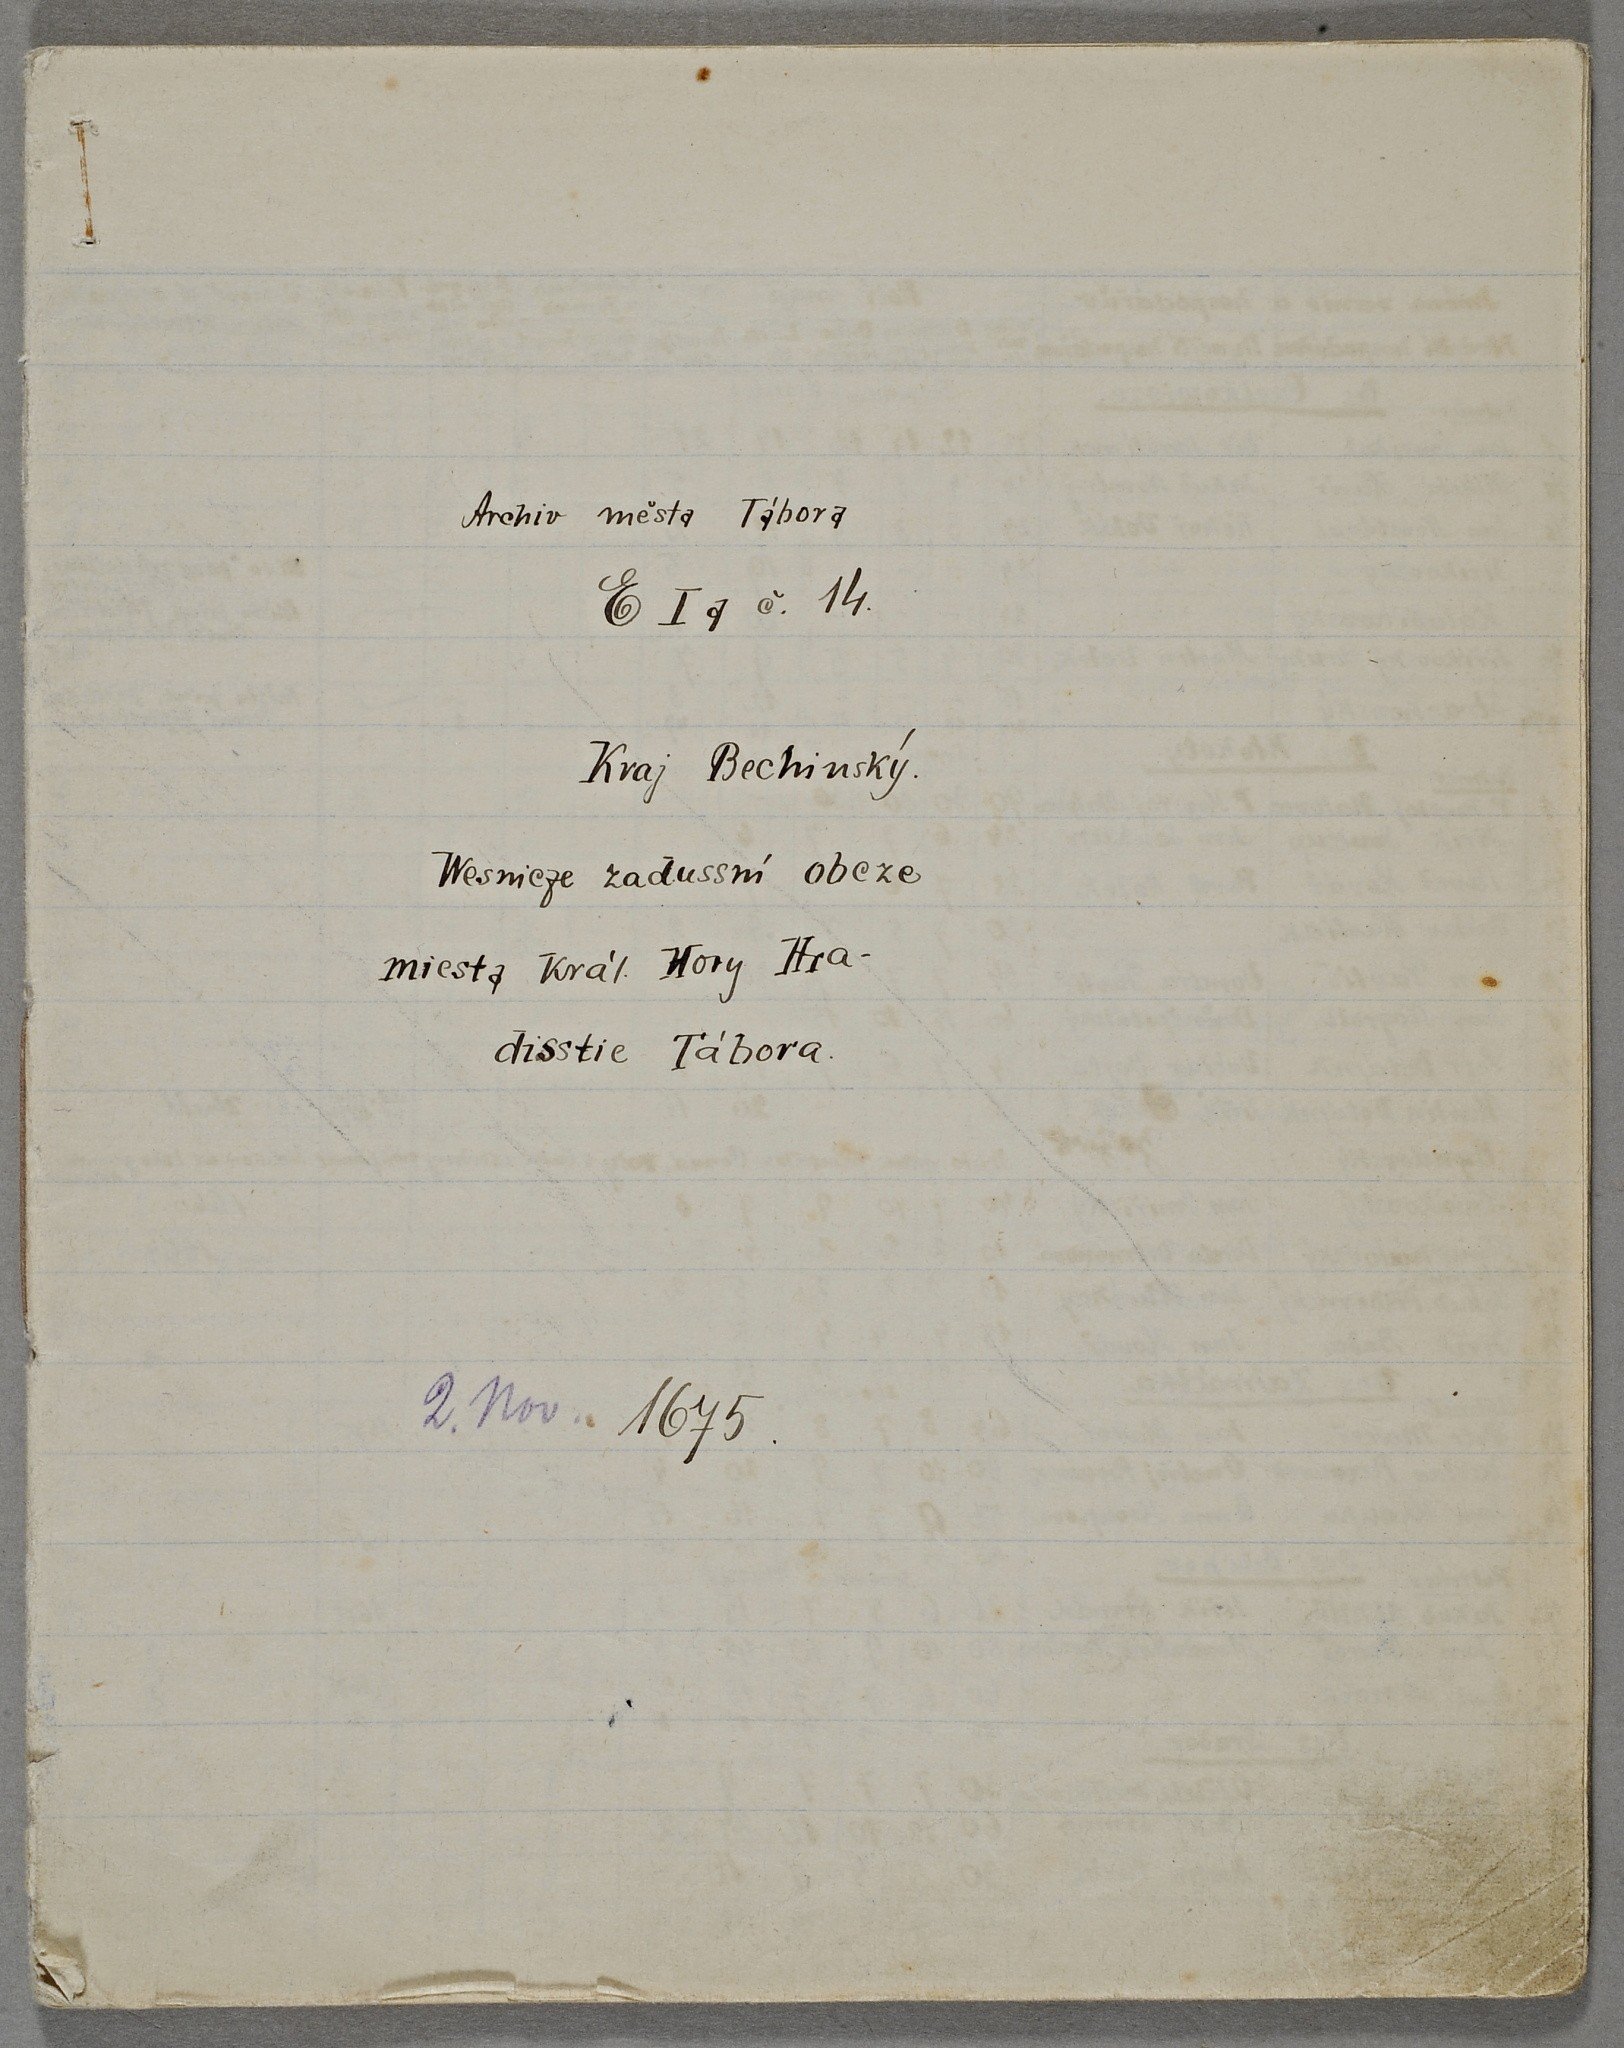 Archiv města Tábora
E I a č. 14.
Kraj Bechinský.
Wesnicze zadussní obcze
miesta Král. Hory Hra-
disstie Tábora.
2. Nov. 1675.